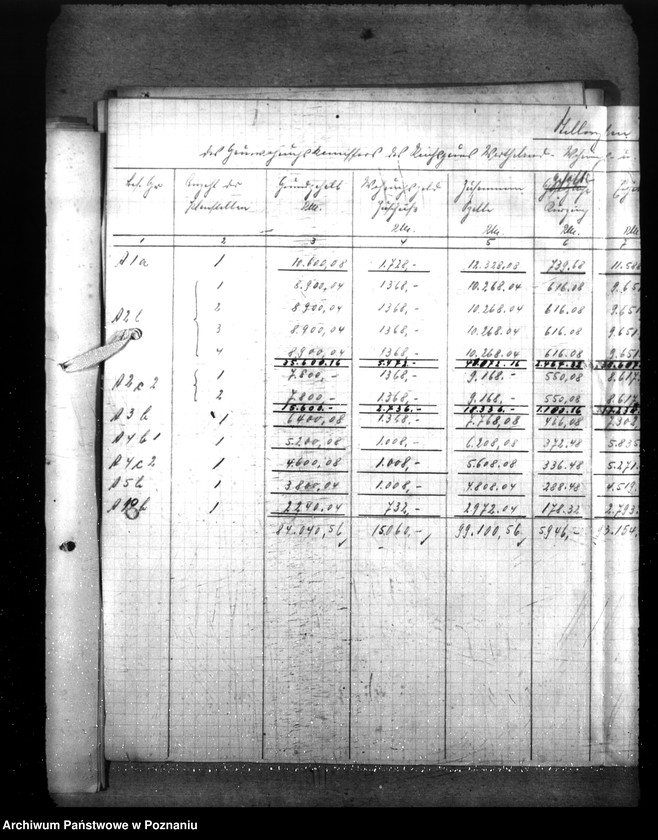 des Reichsgaus Wartheland
Bes. Gr. Anzahl der Grundgehalt Wohnungsgeld Zusammen Gehalts
Planstellen RM. Zuschüsse Spalte Kürzung
RM. RM. RM. RM.
1 2 3 4 5 6 7
A 1 a 1 10.600,08 1.728,- 12.328.08 739.68
1 8.900,04 1368,- 10.268.04 616.08 9.651
A 2 b 2 8.900,04 1368,- 10.268.04 616.08 9.651
3 8.900,04 1368,- 10.268.04 616.08 9.651
4 8.900,04 1368,- 10.268.04 616.08 9.651
35.600.16 5.472,- 41.072.16
A 2 c 2 1 7.800,- 1368,- 9.168,- 550,08 8.617
2 7.800,- 1368,- 9.168,- 550,08 8.617
15.600,- 2.736,- 18.336,- 1.100.16
A 3 b 1 6400,08 1368,- 7.768,08 466,08
A 4 b 1 1 5.200,08 1.008,- 6.208.08 372.48 5.835
A 4 c 2 1 4.600,08 1.008,- 5.608.08 336.48 5.271
A 5 b 1 1.008,- 4.808.04 288.48 4.519
1 2240.04 732,- 2972.04 178.32 2.793
84.040,56 15.060,- 99.100,56 5946,- 93.154
Archiwum Państwowe w Poznaniu